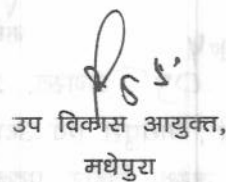 उप विकास आयुक्त,
मधेपुरा